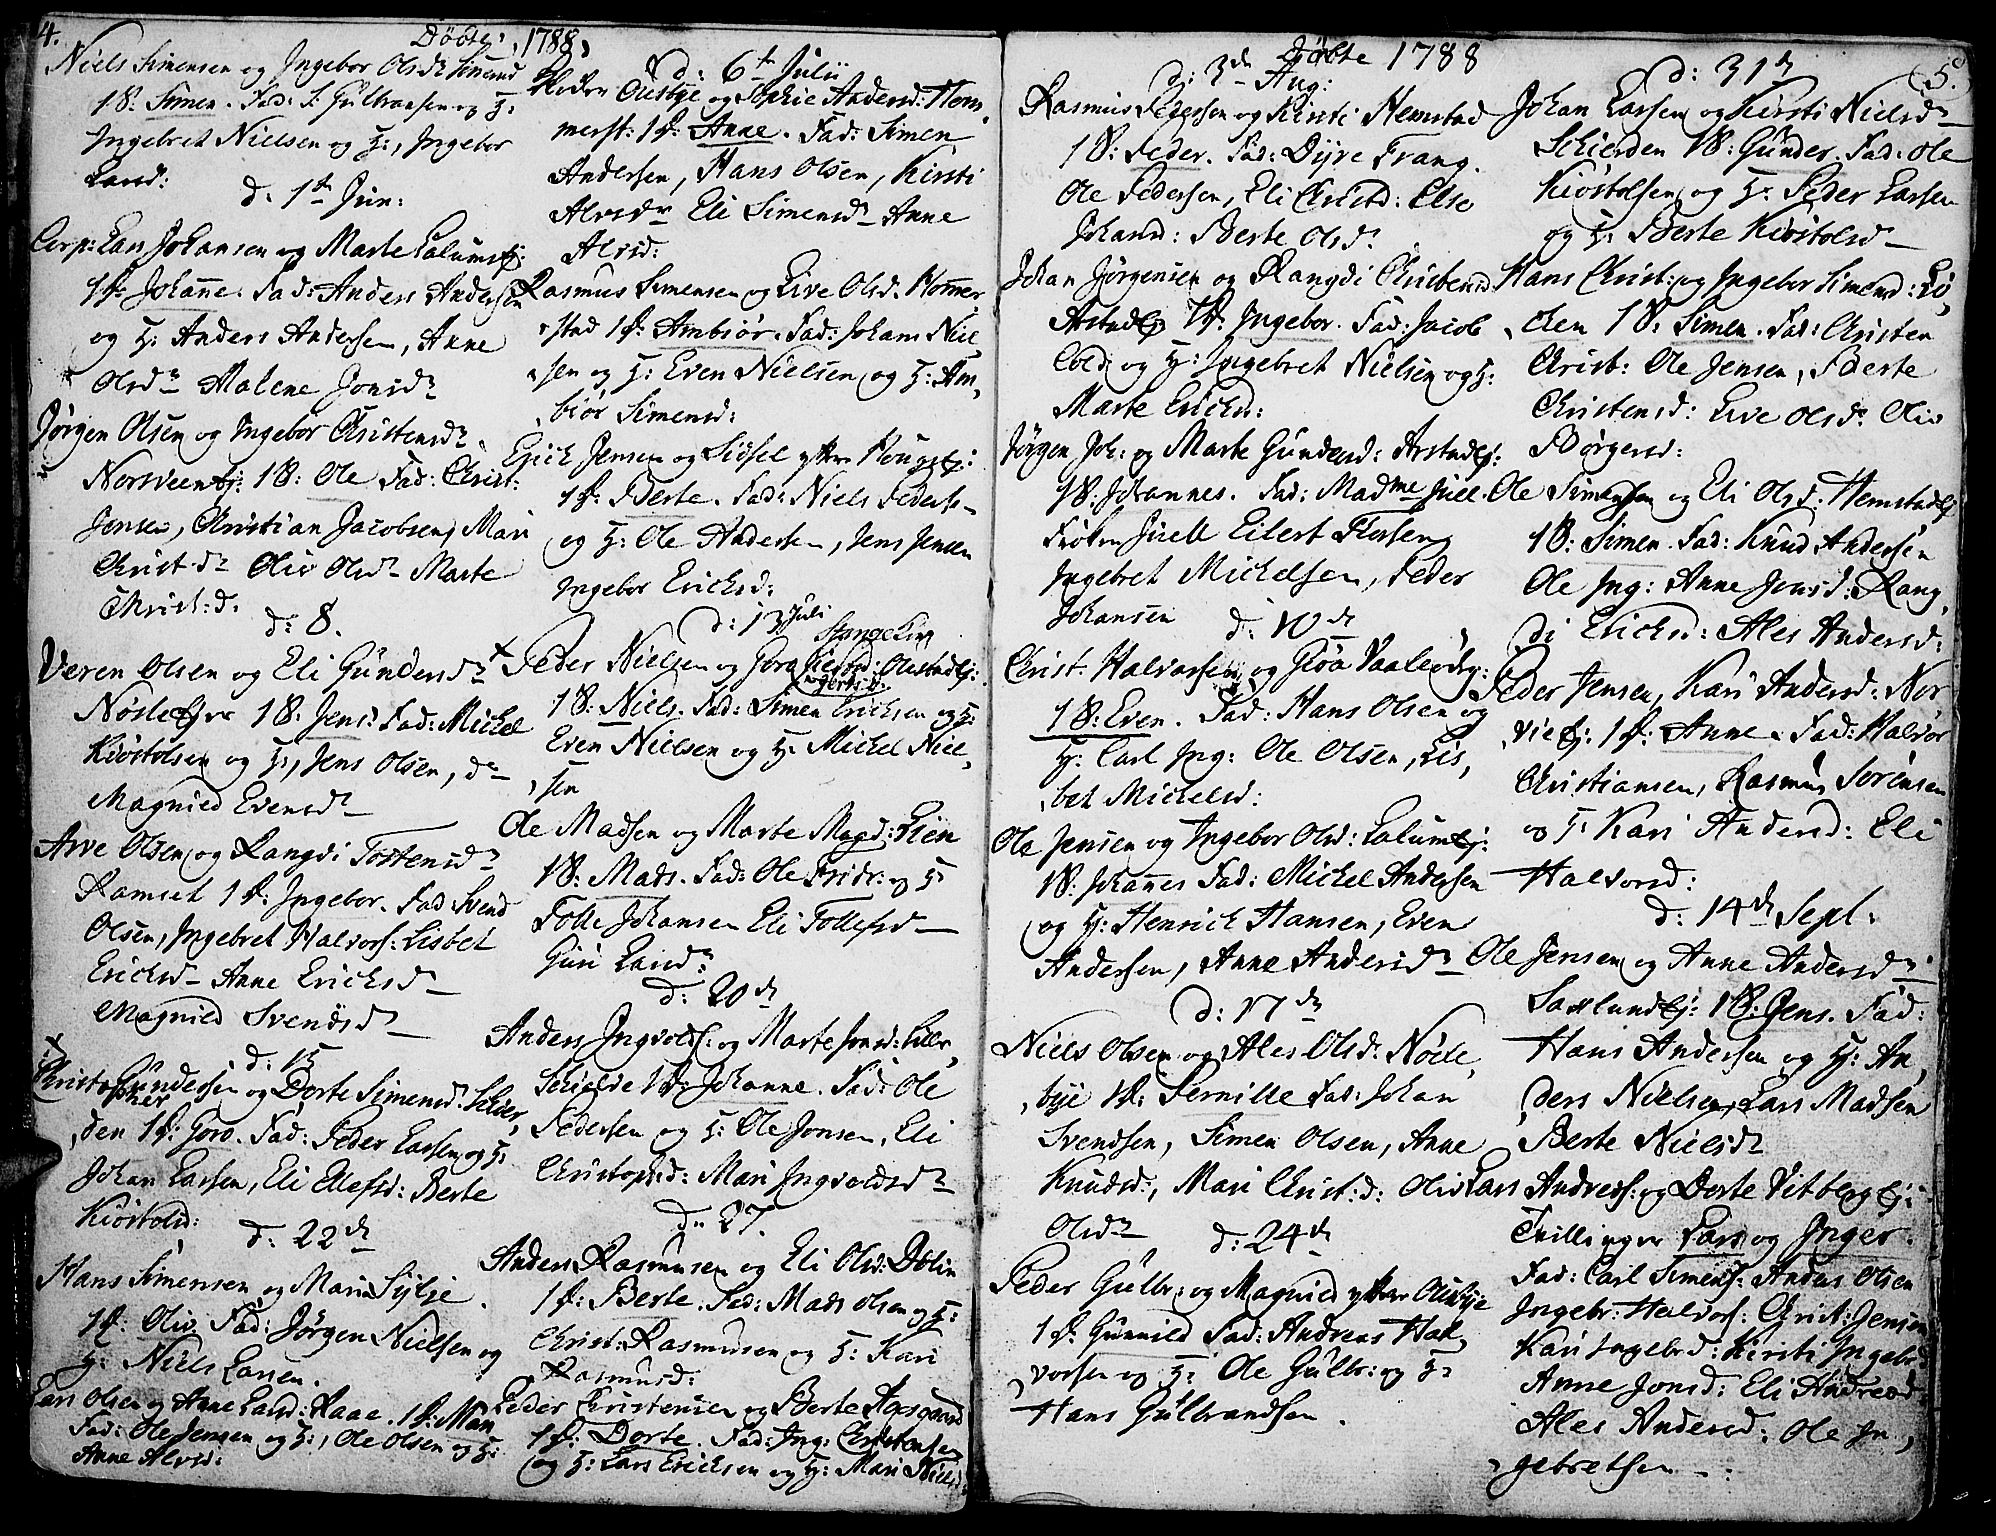 4.
Döbte, 1788,
Niels Simensen og Ingebor Olsdr
1 S: Simen. Fad: S: Gulbransen og H:
Ingebret Nielsen og H:, Ingebor
Larsd:
d: 1te Jun:
Corp: Lars Johansen og Marte Lalumej:
1 P: Johanne. Fad: Anders Andersen
og H: Anders Andersen, Anne
Olsdr Malene Jonsdr
Jörgen Olsen og Ingebor Christensdr
Norsveenej: 1 S: Ole Fad: Christ:
Jensen, Christian Jacobsen, Mari
Christ.dr Oliv Olsdr Marte
Christ:d:
d: 8.
Veren Olsen og Eli Gundersdr
1 S: Jens. Fad: Michel
Kiöstolsen og H:, Jens Olsen, dr
Magnild Evensdr
Arve Olsen og Rangdi Tostensdr
Ramset 1 P: Ingebor. Fad: Svend
Olsen, Ingebret Halvors: Lisbet
Ericksd Anne Ericksd
Magnild Svendsdr
d: 15
Christopher Gundersen og Dorte Simensd: Schier,
den 1 P: Goro. Fad: Peder Larsen og H:
Johan Larsen, Eli Ellefsd: Berte
Kiöstolsd:
d: 22de
Hans Simensen og Mari Sylje
1 P: Oliv. Fad: Jörgen Nielsen og
H: Niels Larsen.
Lars Olsen og Anne Larsd: Raae. 1 P: Mari
Fad: Ole Jensen og H:, Ole Olsen og H:
Anne Alvsd:
d: 6te Julii
Peder Ousbye og Sophie Andersd: Hom,
merst: 1 P: Anne. Fad: Simen
Andersen, Hans Olsen, Kirsti
Alvsdr Eli Simensdr Anne
Alvsd:
Rasmus Simensen og Live Olsd: Hommer
stad 1 P: Ambiör. Fad: Johan Niel,
sen og H: Even Nielsen og H: Am,
biör Simensd:
Erick Jensen og Sidsel
1 P: Berte. Fad: Niels Peders
og H: Ole Andersen, Jens Jensen
Ingebor Ericksd:
d: 13 Juli
Stange Kirk
Peder Nielsen og Goro
1 S: Niels. Fad: Simen Ericksen og H:
Even Nielsen og H: Michel Niel,
sen
Ole Madsen og Marte Magd: Lien
1 S: Mads. Fad: Ole Fridr: og H:
Tolle Johansen Eli Tollefsd
Guri Larsdr
d: 20de
Anders Ingvolds: og Marte Jonsd: Lille,
Schielve 1 P: Johanne. Fad: Ole
Pedersen og H: Ole Jonsen, Eli
Christophd: Mari Ingvoldsdr
d: 27
Anders Rasmusen og Eli Olsd: Dölin
1 P: Berte. Fad: Mads Olsen og H:
Christ: Rasmusen og H: Kari
Rasmusd:
Peder Christensen og Berte Aasgaard
1 P: Dorte. Fad: Ing: Christensen
og H: Lars Ericksen og H: Mari Nielsd
Döbte 1788
d: 3de Aug:
Rasmus Pedersen og Kirsti Hemstad
1 S: Peder. Fad: Dyre Frang.
Ole Pedersen, Eli Christd: Else
Johansd: Berte Olsdr
Johan Jörgensen og Rangdi Christensd
Arstadej 1 P: Ingebor. Fad: Jacob
Cold og H: Ingebret Nielsen og H:
Marte Ericksd:
Jörgen Joh: og Marte Gundersd: Arstadej:
1 S: Johannes. Fad: Madme Juell
Fröken Juell Eilert
Ingebret Michelsen, Peder
Johansen
d: 10de
Christ. Halvorsen og Gröa
1 S: Even. Fad: Hans Olsen og
H: Carl Ing: Ole Olsen, Lis,
bet Michelsd:
Ole Jensen og Ingebor Olsd: Lalumej:
1 S: Johannes Fad: Michel Andersen
og H: Henrick Hansen, Even
Andersen, Anne Andersdr
d: 17de
Niels Olsen og Ales Olsd: Nöde,
bye 1 P: Pernille Fad: Johan
Svendsen, Simen Olsen, Anne
Knudsd:, Mari Christ:d: Oliv
Olsdr
d: 24de
Peder Gulbr: og Magnild
1 P: Gunnild Fad: Andreas Hal,
vorsen og H: Ole Gulbr: og H:
Hans Gulbrandsen.
5.
d: 31te
Johan Larsen og Kirsti Nielsdr
Schierden 1 S: Gunder. Fad: Ole
Kiöstolsen og H: Peder Larsen
og H: Berte Kiöstolsd
Hans Christ: og Ingebor Simensd: Lö,
chen 1 S: Simen. Fad: Christen
Christ: Ole Jensen, Berte
Christensd: Live Olsdr Oliv
Börgersd:
Ole Simensen og Eli Olsd: Hemstadej
1 S: Simen. Fad: Knud Andersen
Ole Ing: Anne Jonsd: Rang,
di Ericksd: Ales Andersd:
Peder Jensen, Kari Andersd: Nor
vieej: 1 P: Anne. Fad: Halvor
Christiansen, Rasmus Sörensen
og H: Kari Andersd: Eli
Halvorsd:
d: 14de Sept:
Ole Jensen og Anne Andersdr
Saxlundej: 1 S: Jens. Fad:
Hans Andersen og H: An,
ders Nielsen, Lars Madsen
Berte Nielsdr
Lars Andreas: og Dorte Vitbergej:
Tvillinger Lars og Inger.
Fad: Carl Simens: Anders Olsen
Ingebr: Halvors: Christ: Jensen
Kari Ingebrd: Kirsti Ingebrd
Anne Jonsd: Eli Andreasd:
Ales Andersd: Ole In,
gebretsen